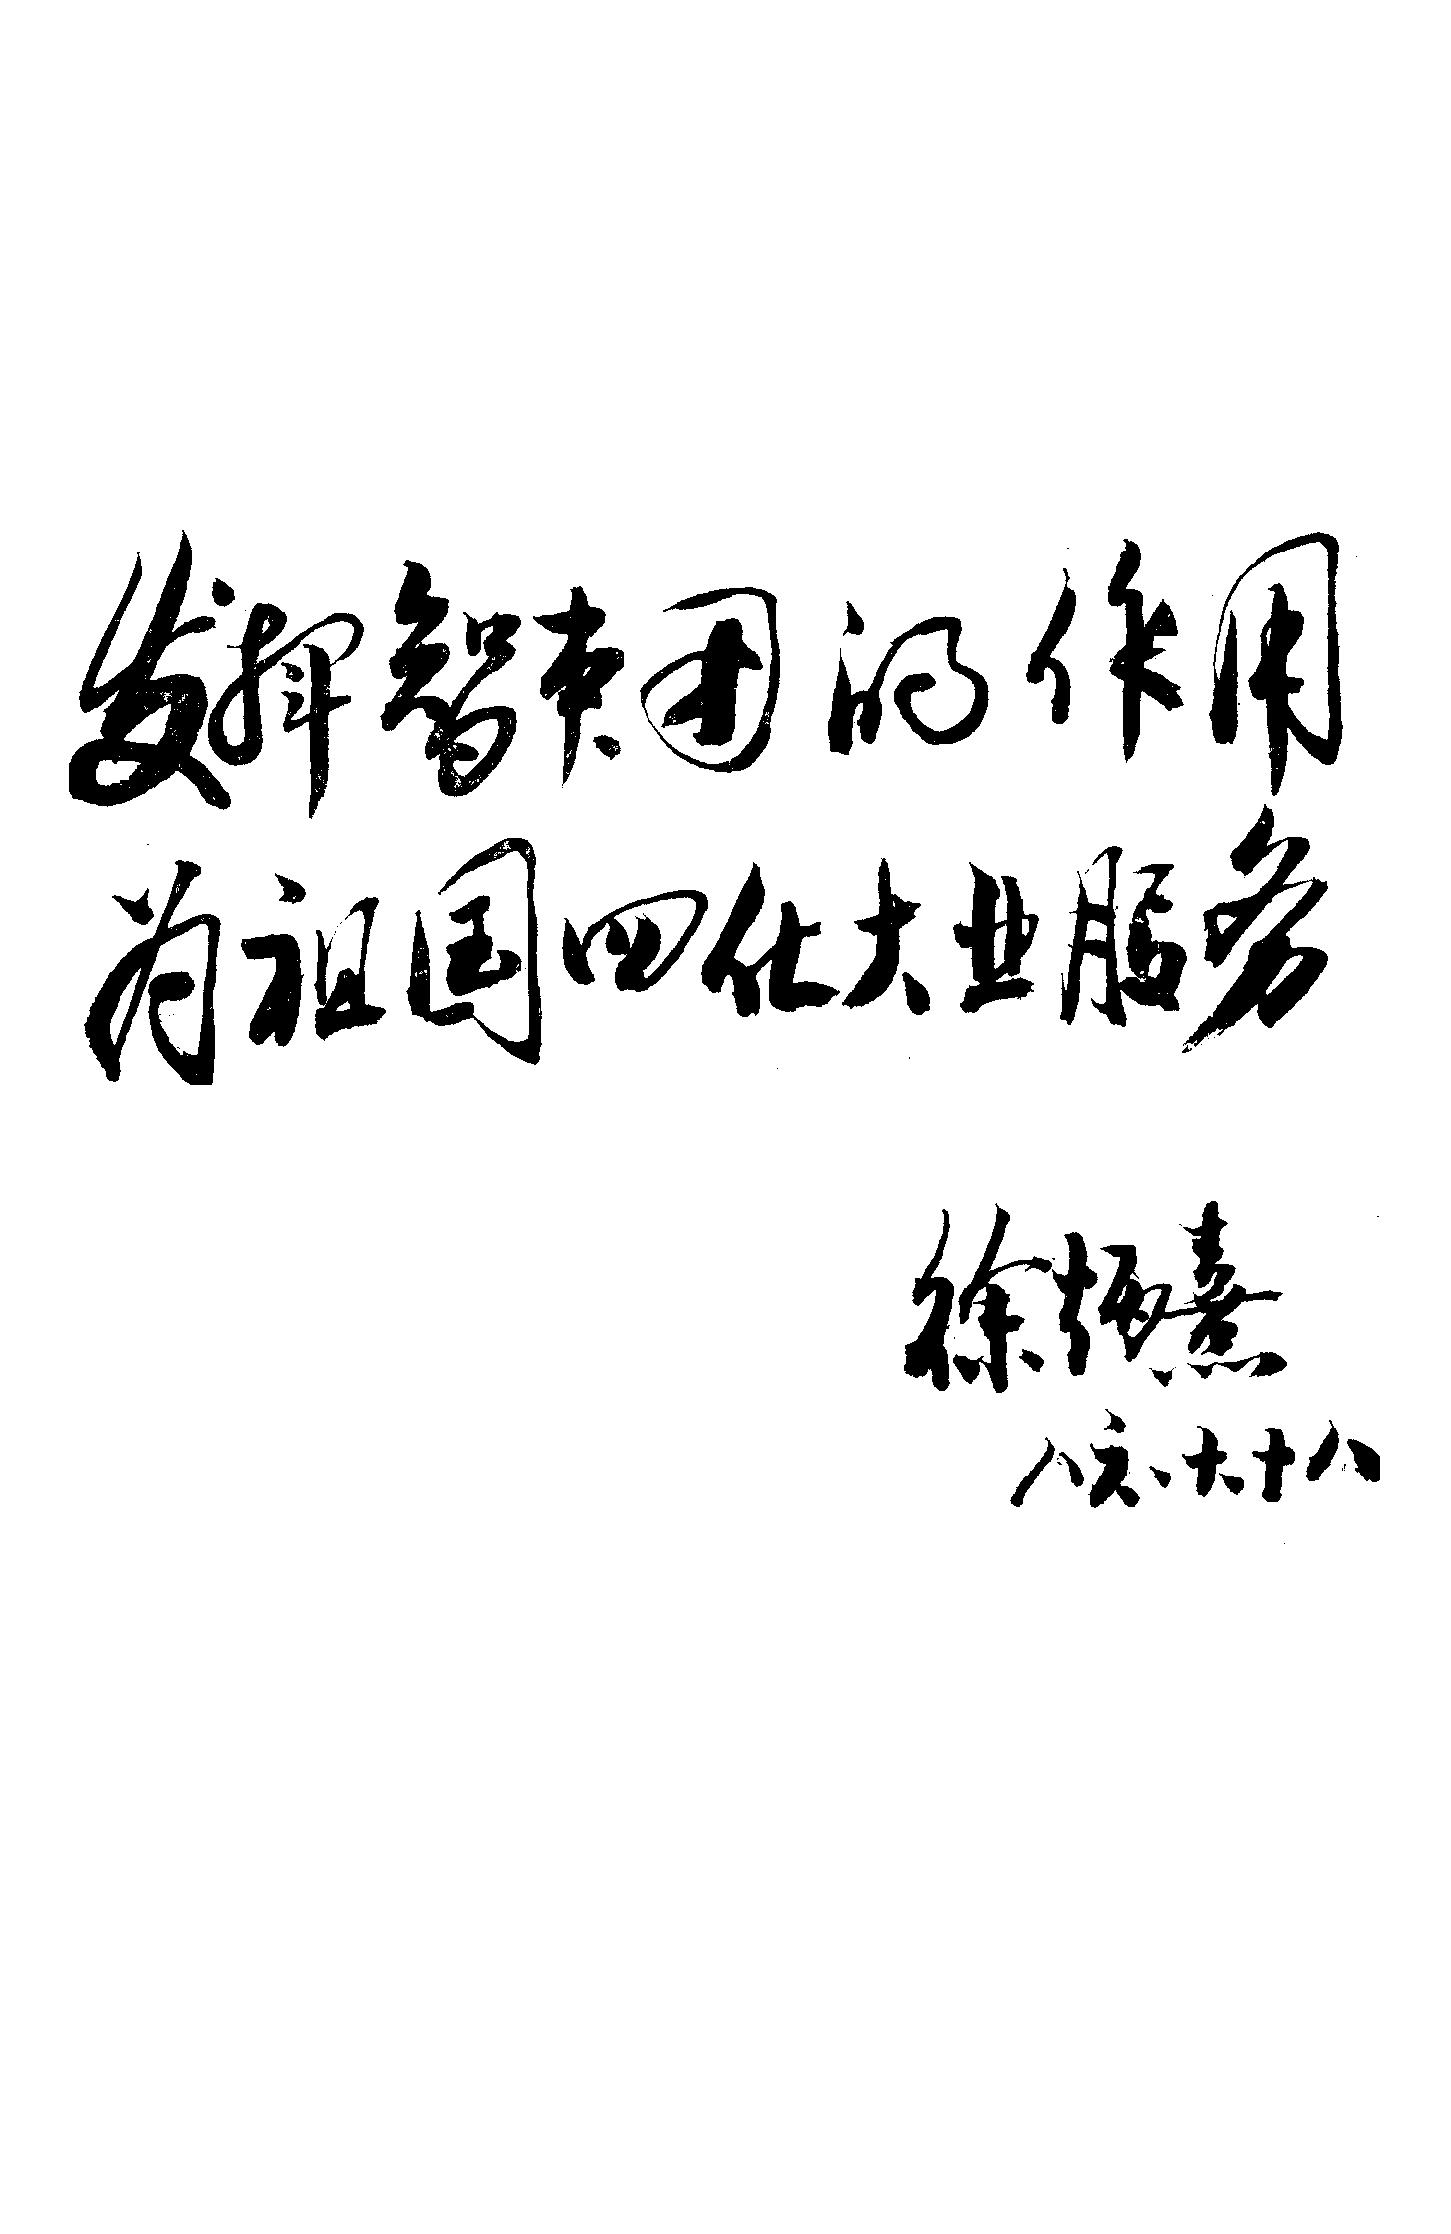 发挥智囊团的作用
为祖国四化大业服务
徐振熹
八六、六、十八